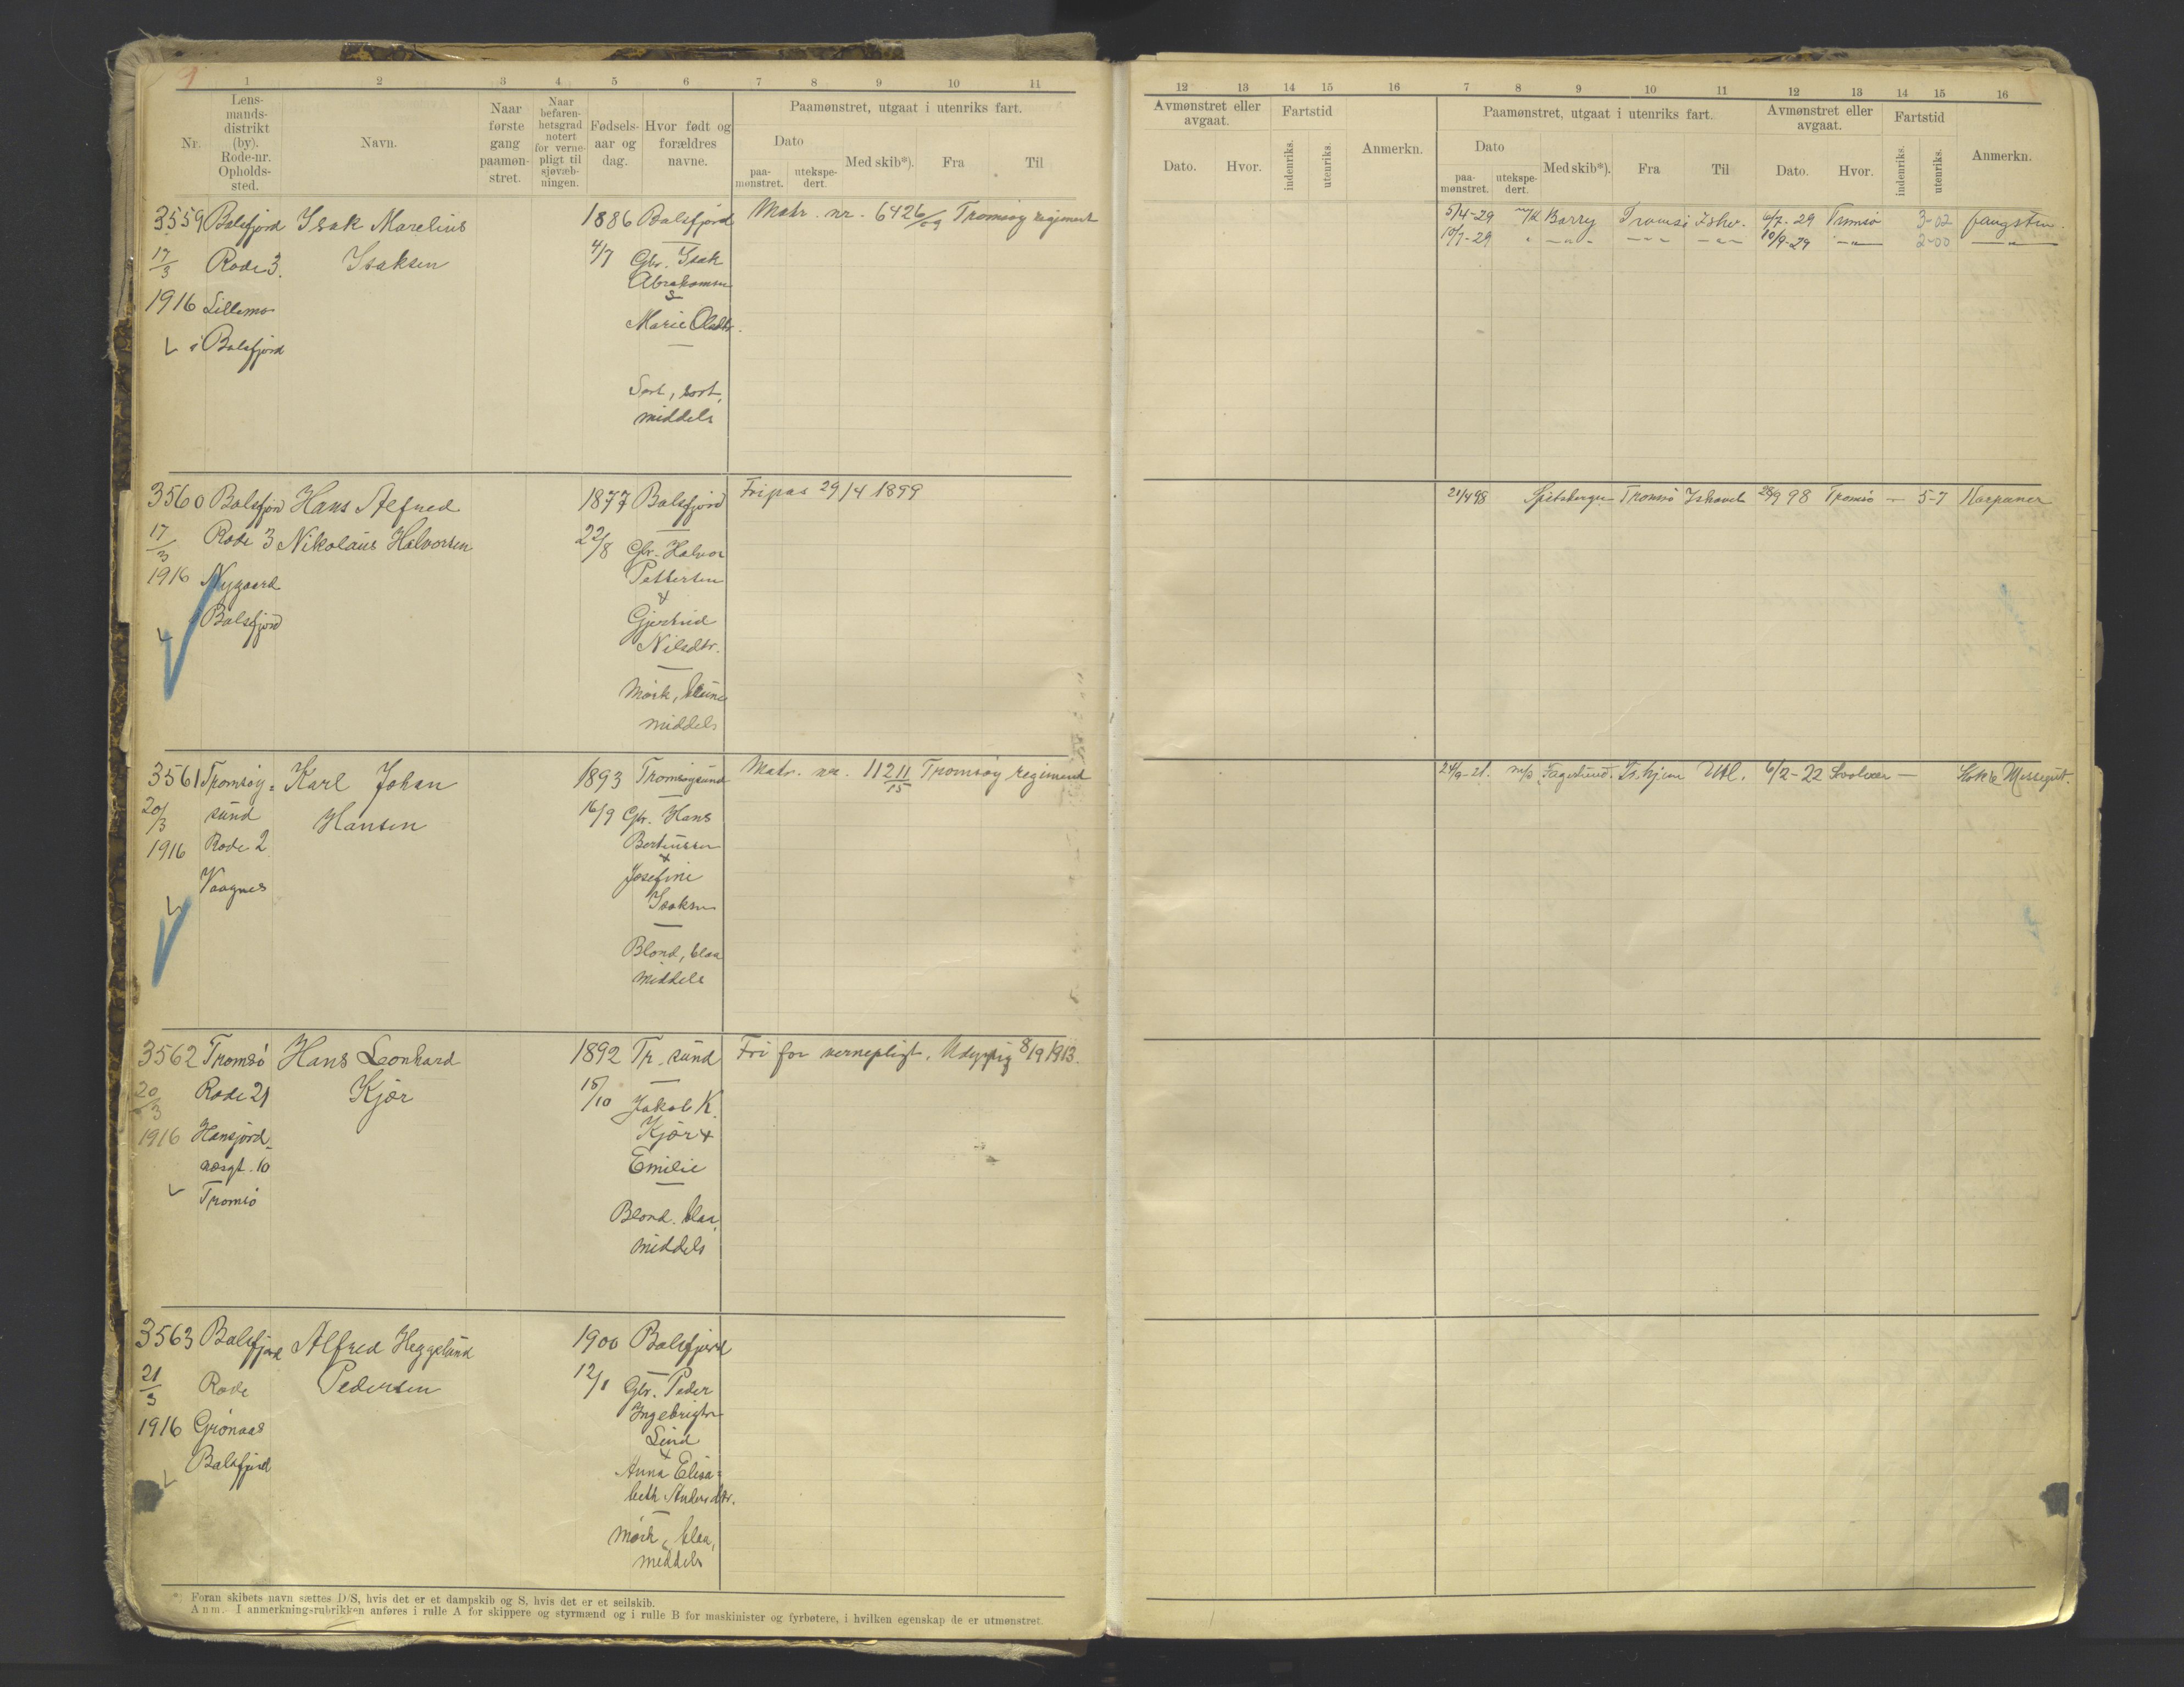 1 2 3 4 5 6 7 8 9 10 11
Nr.
Lens-
mands-
distrikt
(by).
Rode-nr.
Opholds-
sted.
Navn.
Naar
første
gang
paamøn-
stret.
Naar
befaren-
hetsgrad
notert
for verne-
pligt til
sjøvæb-
ningen.
Fødsels-
aar og
dag.
Hvor født og
forældres
navne.
Paamønstret, utgaat i utenriks fart.
Dato
paa-
mønstret.
utekspe-
dert.
Med skib*).
Fra
Til
3559 Balsfjord Isak Marelius 1886 Balsfjord Matr. nr. 6426/09 Tromsøy regiment
17/3 Rode 3. Isaksen 4/7 Gbr. Isak
Abrahamsen
&
1916 Lillemo
Marie Olsdtr.
i Balsfjord
Sort, sort,
middels
3560 Balsfjord Hans Alfred 1877 Balsfjord Fripas 29/4 1899
17/3 Rode 3 Nikolaus Halvorsen 22/8 Gbr. Halvor
1916 Nygaard
Pettersen
&
i Balsfjord
Gjertrud
Nilsdtr.
Mørk, brune
middels
3561 Tromsøy- Karl Johan 1893 Tromsøysund Matr. nr. 112 11/15 Tromsøy regiment
20/3 sund Hansen 16/9 Gbr. Hans
1916 Rode 2
Bertinussen
&
Vaagnes
Josefine
Isaksen
Blond, blaa
middels
3562 Tromsø Hans Leonhard 1892 Tr. sund Fri for vernepligt. Udygtig 8/9 1913.
20/3 Rode 21 Kjær 15/10 Jakob K.
1916 Hansjord-
Kjær &
næsgt. 10
Emilie
Tromsø
Blond. blaa,
middels
3563 Balsfjord Alfred Heggelund 1900 Balsfjord
21/3 Rode Pedersen 12/1 Gbr. Peder
Ingebrigtsen
1916 Grønaas
Lind
&
Balsfjord
Anna Elisa-
beth Andersdtr.
Mørk, blaa,
middels
*) Foran skibets navn sættes D/S, hvis det er et dampskib og S, hvis det er et seilskib.
Anm. I anmerkningsrubrikken anføres i rulle A for skippere og styrmænd og i rulle B for maskinister og fyrbøtere, i hvilken egenskap de er utmønstret.
12 13 14 15 16 7 8 9 10 11 12 13 14 15 16
Avmønstret eller
avgaat.
Dato. Hvor.
Fartstid
indenriks. utenriks.
Anmerkn.
Paamønstret, utgaat i utenriks fart.
Dato
paa-
mønstret.
utekspe-
dert.
Med skib*). Fra Til
Avmønstret eller
avgaat.
Dato. Hvor.
Fartstid
indenriks. utenriks.
Anmerkn.
5/4-29 M/K Barry Tromsø Ishv. 6/7-29 Tromsø 3-02 fangstm.
10/7-29 " — " — — " — — " — 10/9-29 — " — 2-00 — " —
21/4 98 Spitsbergen Tromsø Ishavet 28/9 98 Tromsø — 5-7 Harpuner
24/9-21. m/s Fagerlund. Ts. hjem Utl. 6/2-22 Svolvær — Kok & Messegutt.